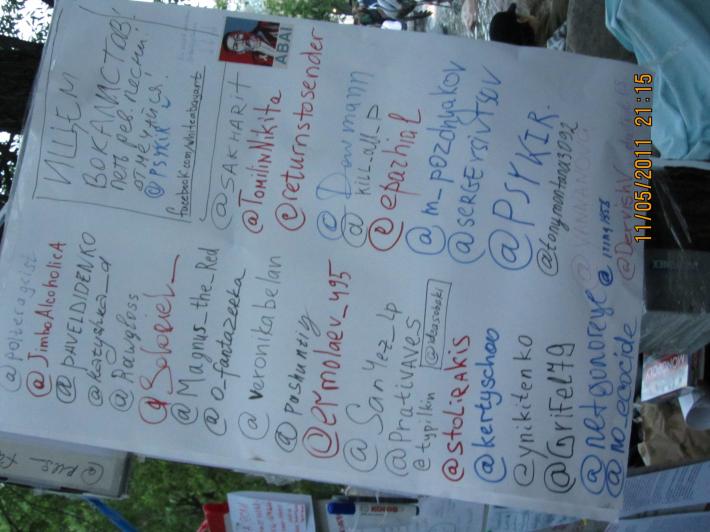 ИЩЕМ
ВОКАЛИСТОВ!
петь рев. песни!
отмечайся!
@PSYKIR
facebook.com/whiteabayart
ABAI
@SAKHARIT
@TomilinNikita
@returnstosender
@Dowmann
@kill_all_p
@epazhiaL
@m_pozdnyakov
@SERGErsivtsov
@PSYKIR.
@tonymontana3092
@poltierageist
@JimboAlcoholicA
@PAVELDIDENKO
@katyanka_d
@Rawgloss
@Magnus_the_Red
@o_fantazeeka
@veronikabelan
@pashuntiy
@ermolaev_495
@SanYez_Lp
@PratiVAVes
@typilkin
@stoliRAKis
@kertyschoo
@ynikitenko
@GriFel79
@netgonoreye
@no_ecocide
11/05/2011 21:15